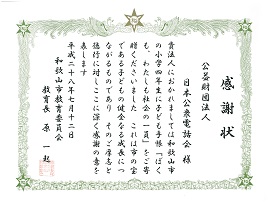 感謝状
公益財団法人
日本公衆電話会 様
貴法人におかれましては和歌山市
の小学四年生に子ども手帳「ぼく
も、わたしも社会の一員」をご寄
贈くださいました これは市の宝
である子どもの健全なる成長につ
ながるものであり そのご厚志と
徳行に対しここに深く感謝の意を
表します
平成二十八年七月十二日
和歌山市教育委員会
教育長 原 一起